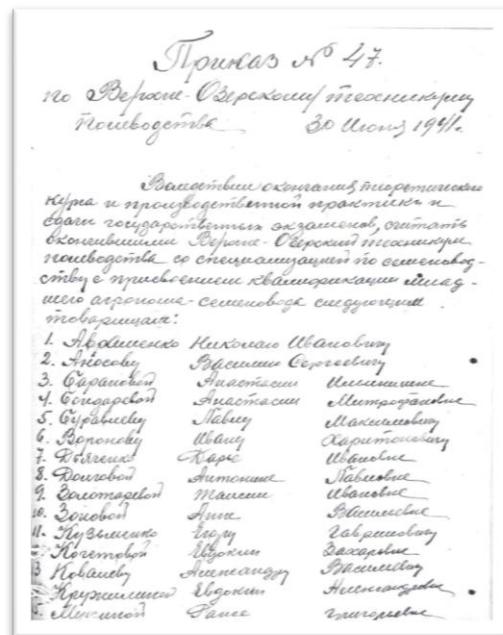 Приказ № 47.
по Верхне-Озерскому техникуму
полеводства 30 Июня 1941г.
Вследствии окончания теоретического
курса и производственной практики и
сдачи государственных экзаменов, считать
окончившими Верхне-Озерский техникум
полеводства со специализацией по семеновод-
ству с присвоением квалификации млад-
шего агронома-семеновода следующим
товарищам:
1. Авраменко Николаю Ивановичу
2. Аносову Василию Сергеевичу
3. Барановой Анастасии Ильиничне
4. Бондаревой Анастасии Митрофановне
5. Буравлеву Павлу Максимовичу
6. Воронову Ивану Харитоновичу
7. Дьяченко Ивановне
8. Долговой Антонине Павловне
9. Золотаревой Таисии Ивановне
10. Зоновой Анне Васильевне
11. Кузьменко Егору Гавриловичу
Кочетовой Евдокии Захаровне
3 Ковалеву Александру Васильевичу
Кружилиной Евдокии Александровне
5. Раисе Григорьевне